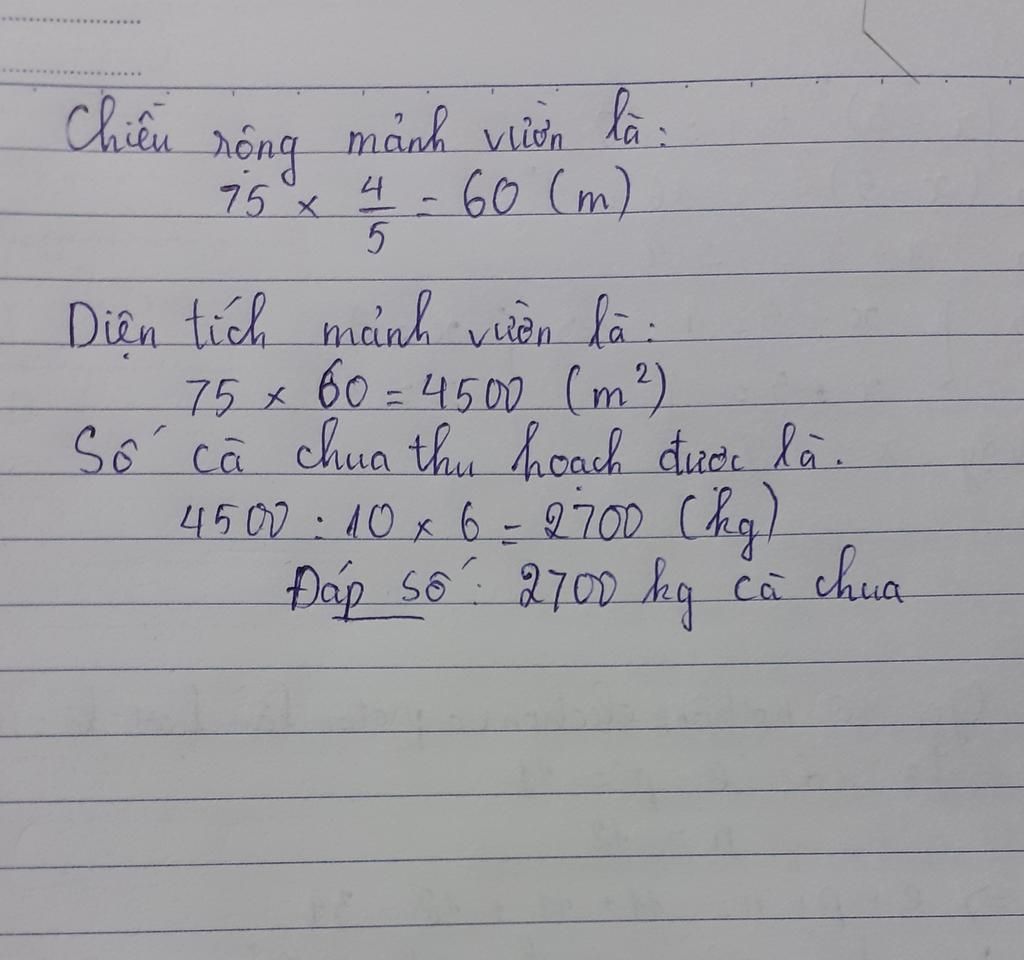 Chiều rộng mảnh vườn là:
75 × 4/5 = 60 (m)
Diện tích mảnh vườn là:
75 × 60 = 4500 (m²)
Số cà chua thu hoạch được là.
4500 : 10 × 6 = 2700 (kg)
Đáp số: 2700 kg cà chua